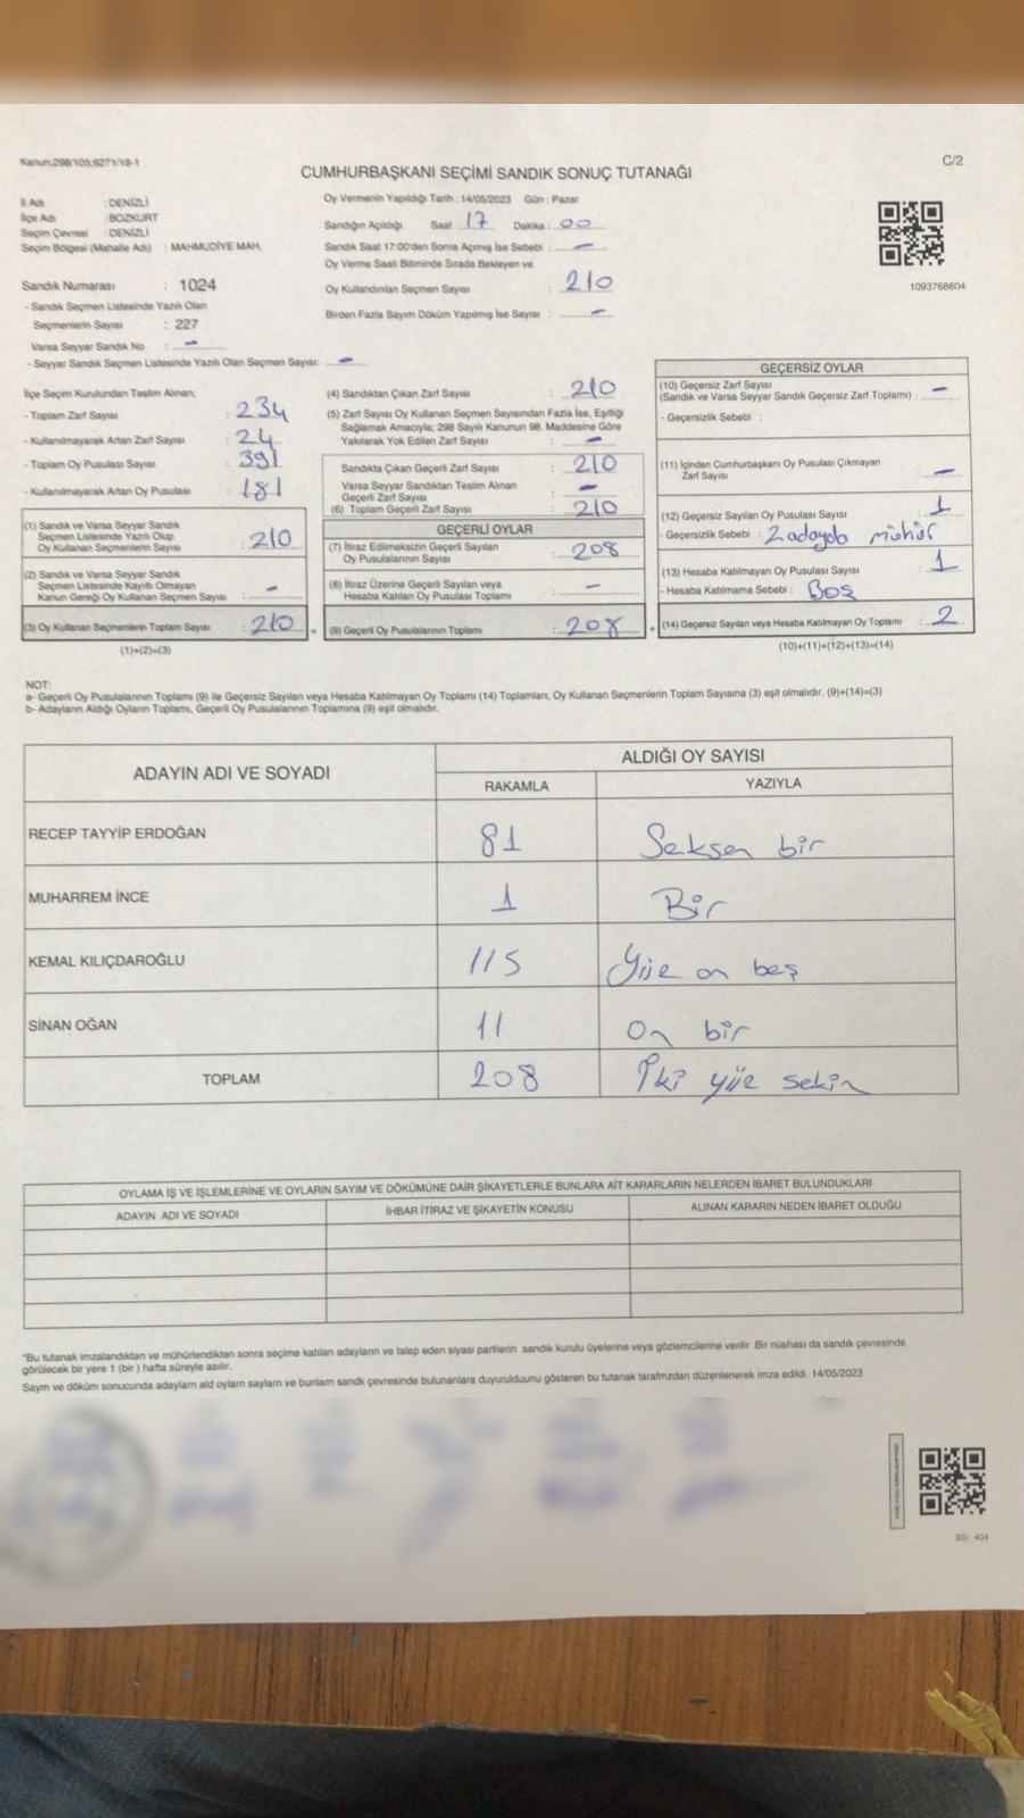 Kanun:298/105;6271/18-1
C/2
CUMHURBAŞKANI SEÇİMİ SANDIK SONUÇ TUTANAĞI
İl Adı : DENİZLİ
İlçe Adı : BOZKURT
Seçim Çevresi : DENİZLİ
Seçim Bölgesi (Mahalle Adı) : MAHMUDİYE MAH.
Sandık Numarası : 1024
- Sandık Seçmen Listesinde Yazılı Olan
Seçmenlerin Sayısı : 227
Varsa Seyyar Sandık No : -
- Seyyar Sandık Seçmen Listesinde Yazılı Olan Seçmen Sayısı: -
Oy Vermenin Yapıldığı Tarih : 14/05/2023 Gün : Pazar
Sandığın Açıldığı Saat 17 Dakika : 00
Sandık Saat 17:00'den Sonra Açılmış İse Sebebi : -
Oy Verme Saati Bitiminde Sırada Bekleyen ve
Oy Kullandırılan Seçmen Sayısı : 210
Birden Fazla Sayım Döküm Yapılmış İse Sayısı : -
1093768604
İlçe Seçim Kurulundan Teslim Alınan;
- Toplam Zarf Sayısı : 234
- Kullanılmayarak Artan Zarf Sayısı : 24
- Toplam Oy Pusulası Sayısı : 391
- Kullanılmayarak Artan Oy Pusulası : 181
(1) Sandık ve Varsa Seyyar Sandık
Seçmen Listesinde Yazılı Olup
Oy Kullanan Seçmenlerin Sayısı : 210
(2) Sandık ve Varsa Seyyar Sandık
Seçmen Listesinde Kayıtlı Olmayan
Kanun Gereği Oy Kullanan Seçmen Sayısı : -
(3) Oy Kullanan Seçmenlerin Toplam Sayısı : 210
(1)+(2)=(3)
(4) Sandıktan Çıkan Zarf Sayısı : 210
(5) Zarf Sayısı Oy Kullanan Seçmen Sayısından Fazla İse, Eşitliği
Sağlamak Amacıyla; 298 Sayılı Kanunun 98. Maddesine Göre
Yakılarak Yok Edilen Zarf Sayısı : -
Sandıkta Çıkan Geçerli Zarf Sayısı : 210
Varsa Seyyar Sandıktan Teslim Alınan
Geçerli Zarf Sayısı : -
(6) Toplam Geçerli Zarf Sayısı : 210
GEÇERLİ OYLAR
(7) İtiraz Edilmeksizin Geçerli Sayılan
Oy Pusulalarının Sayısı : 208
(8) İtiraz Üzerine Geçerli Sayılan veya
Hesaba Katılan Oy Pusulası Toplamı : -
(9) Geçerli Oy Pusulalarının Toplamı : 208
GEÇERSİZ OYLAR
(10) Geçersiz Zarf Sayısı
(Sandık ve Varsa Seyyar Sandık Geçersiz Zarf Toplamı) : -
- Geçersizlik Sebebi :
(11) İçinden Cumhurbaşkanı Oy Pusulası Çıkmayan
Zarf Sayısı : -
(12) Geçersiz Sayılan Oy Pusulası Sayısı : 1
- Geçersizlik Sebebi : 2 adayda mühür
(13) Hesaba Katılmayan Oy Pusulası Sayısı : 1
- Hesaba Katılmama Sebebi : Boş
(14) Geçersiz Sayılan veya Hesaba Katılmayan Oy Toplamı : 2
(10)+(11)+(12)+(13)=(14)
NOT:
a- Geçerli Oy Pusulalarının Toplamı (9) ile Geçersiz Sayılan veya Hesaba Katılmayan Oy Toplamı (14) Toplamları, Oy Kullanan Seçmenlerin Toplam Sayısına (3) eşit olmalıdır. (9)+(14)=(3)
b- Adayların Aldığı Oyların Toplamı, Geçerli Oy Pusulalarının Toplamına (9) eşit olmalıdır.
ADAYIN ADI VE SOYADI ALDIĞI OY SAYISI
RAKAMLA YAZIYLA
RECEP TAYYİP ERDOĞAN 81 Seksen bir
MUHARREM İNCE 1 Bir
KEMAL KILIÇDAROĞLU 115 Yüz on beş
SİNAN OĞAN 11 On bir
TOPLAM 208 İki yüz sekiz
OYLAMA İŞ VE İŞLEMLERİNE VE OYLARIN SAYIM VE DÖKÜMÜNE DAİR ŞİKAYETLERLE BUNLARA AİT KARARLARIN NELERDEN İBARET BULUNDUKLARI
ADAYIN ADI VE SOYADI İHBAR İTİRAZ VE ŞİKAYETİN KONUSU ALINAN KARARIN NEDEN İBARET OLDUĞU
"Bu tutanak imzalandıktan ve mühürlendikten sonra seçime katılan adayların ve talep eden siyasi partilerin sandık kurulu üyelerine veya gözlemcilerine verilir. Bir nüshası da sandık çevresinde
görülecek bir yere 1 (bir) hafta süreyle asılır.
Sayım ve döküm sonucunda adayların aldı oyların sayıları ve bunların sandık çevresinde bulunanlara duyurulduunu gösteren bu tutanak tarafımızdan düzenlenerek imza edildi. 14/05/2023